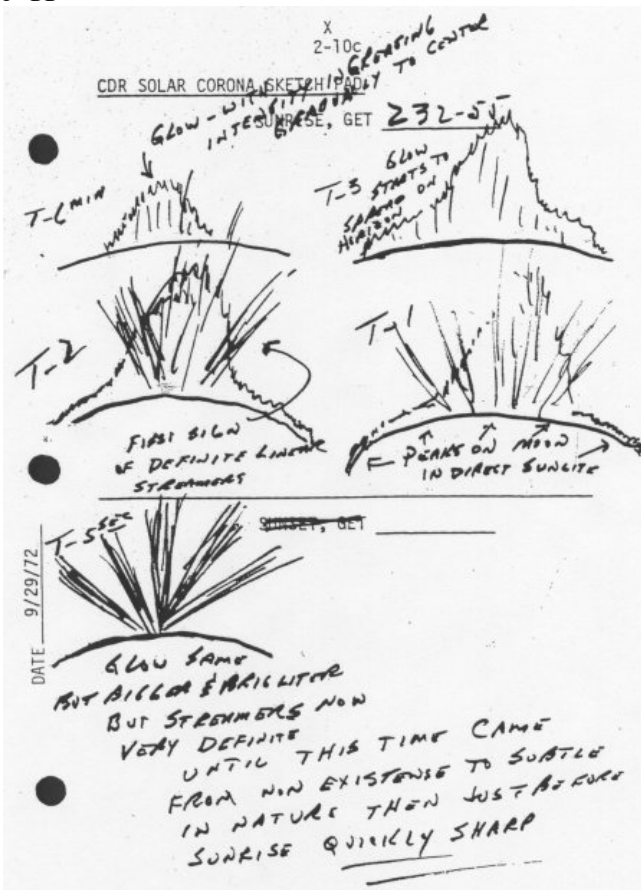 X
2-10c
CDR SOLAR CORONA SKETCH PAD
GLOW - WITH
INTENSITY INCREASING
GRADUALLY TO CENTER
SUNRISE, GET 232-55
T-6 MIN
T-3
GLOW
STARTS TO
SPREAD ON
HORIZON
T-2
FIRST SIGN
OF DEFINITE LINEAR
STREAMERS
T-1
PEAKS ON MOON
IN DIRECT SUNLITE
SUNSET, GET
T-5 SEC
DATE 9/29/72
GLOW SAME
BUT BIGGER & BRIGHTER
BUT STREAMERS NOW
VERY DEFINITE
UNTIL THIS TIME CAME
FROM NON EXISTENSE TO SUBTLE
IN NATURE THEN JUST BEFORE
SUNRISE QUICKLY SHARP